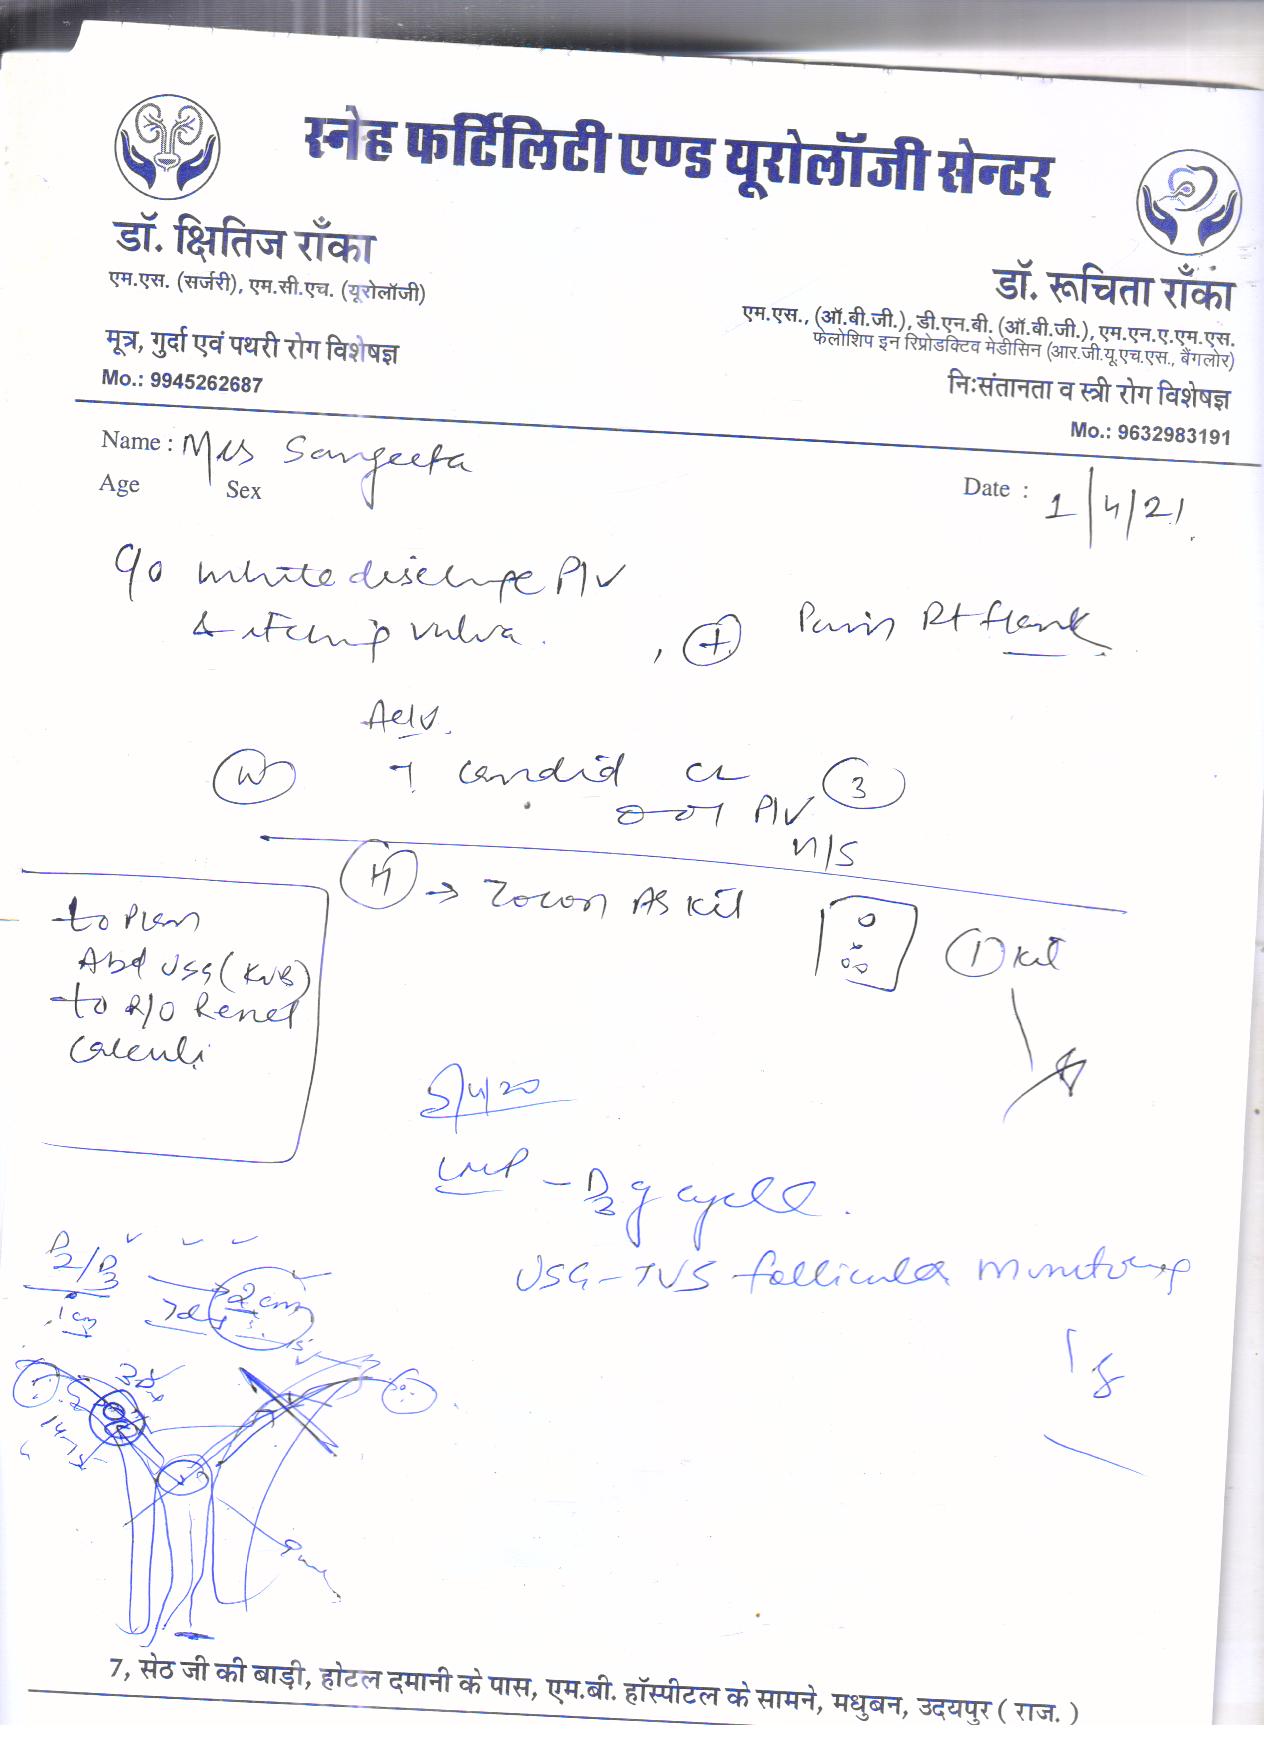 स्नेह फर्टिलिटी एण्ड यूरोलॉजी सेन्टर
डॉ. क्षितिज राँका
एम.एस. (सर्जरी), एम.सी.एच. (यूरोलॉजी)
मूत्र, गुर्दा एवं पथरी रोग विशेषज्ञ
Mo.: 9945262687
डॉ. रूचिता राँका
एम.एस., (ऑ.बी.जी.), डी.एन.बी. (ऑ.बी.जी.), एम.एन.ए.एम.एस.
फेलोशिप इन रिप्रोडक्टिव मेडीसिन (आर.जी.यू.एच.एस., बैंगलोर)
निःसंतानता व स्त्री रोग विशेषज्ञ
Mo.: 9632983191
Name : Mrs Sangeeta
Age Sex
Date : 1/4/21
c/o white discharge P/V
& itching vulva. , + Pain Rt flank
Adv.
candid CL 3
P/V
n/s
H → Zocon AS Kit 1 Kit
to Plan
Abd USG (KUB)
to R/O Renal
Calculi
5/4/20
LMP - D2 of cycle.
USG - TVS follicular monitoring
D2/D3
1 cm 7 days 2 cm
14-15
7, सेठ जी की बाड़ी, होटल दमानी के पास, एम.बी. हॉस्पीटल के सामने, मधुबन, उदयपुर ( राज. )